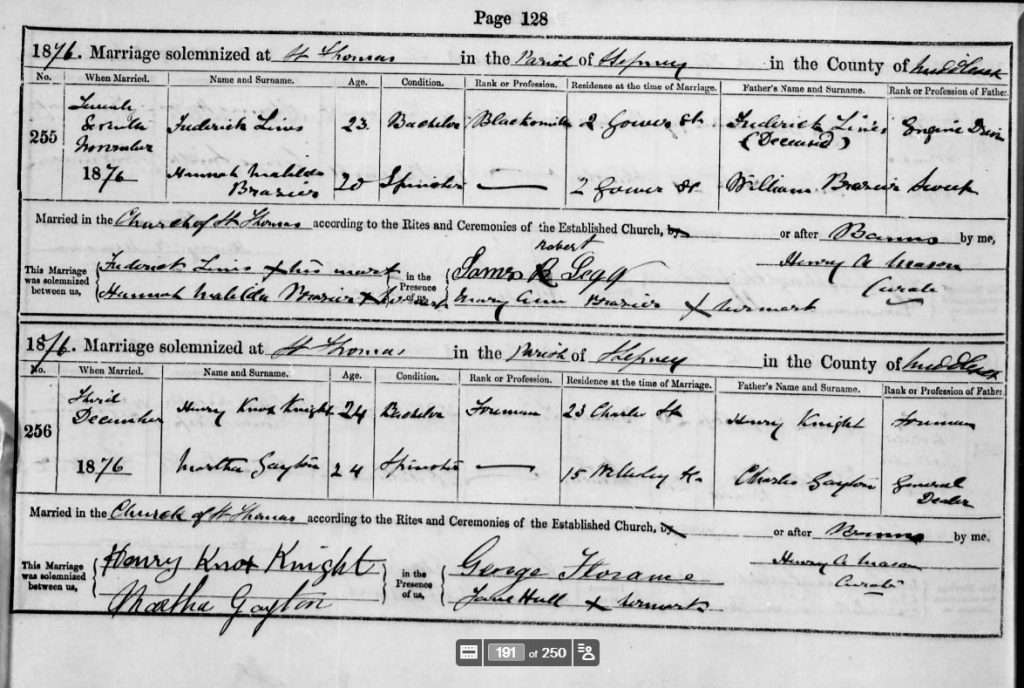 Page 128
1876. Marriage solemnized at St Thomas in the Parish of Stepney in the County of Middlesex
No. When Married. Name and Surname. Age. Condition. Rank or Profession. Residence at the time of Marriage. Father's Name and Surname. Rank or Profession of Father.
255 Seventh Frederick Lines 23 Bachelor Blacksmith 2 Gower St Frederick Lines Engine Driver
November (Deceased)
1876 Hannah Matilda Brazier 20 Spinster — 2 Gower St William Brazier Sweep
Married in the Church of St Thomas according to the Rites and Ceremonies of the Established Church, by or after Banns by me,
This Marriage was solemnized between us, Frederick Lines x his mark in the Presence of us, James Robert Legg Henry A Mason
Hannah Matilda Brazier x her mark Mary Ann Brazier x her mark Curate
1876. Marriage solemnized at St Thomas in the Parish of Stepney in the County of Middlesex
No. When Married. Name and Surname. Age. Condition. Rank or Profession. Residence at the time of Marriage. Father's Name and Surname. Rank or Profession of Father.
256 Third December Henry Knox Knight 24 Bachelor Foreman 23 Charles St Henry Knight Foreman
1876 Martha Gayton 24 Spinster — 15 St Charles Gayton General Dealer
Married in the Church of St Thomas according to the Rites and Ceremonies of the Established Church, by or after Banns by me,
This Marriage was solemnized between us, Henry Knox Knight in the Presence of us, George Henry A Mason
Martha Gayton Jane Hull x her mark Curate
191 of 250